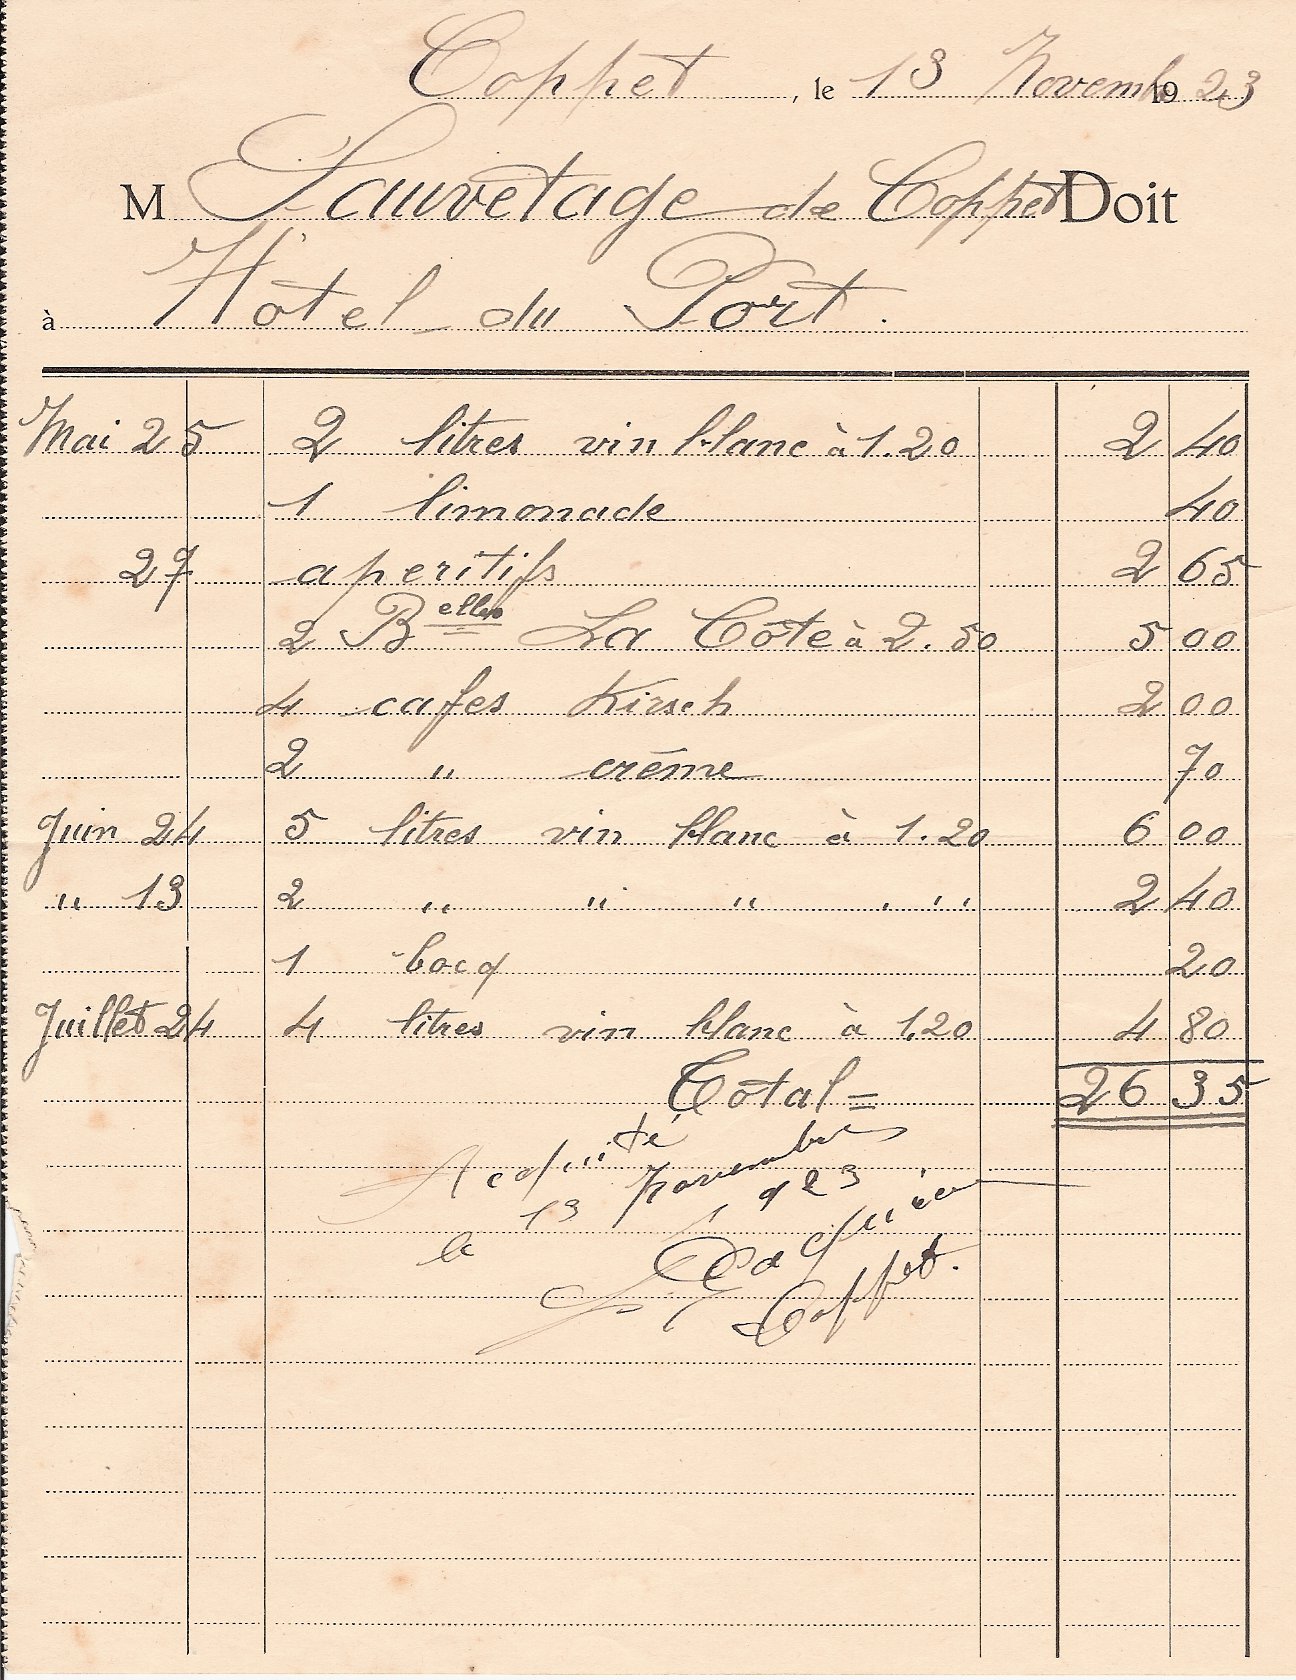 Coppet, le 13 Novemb 1923
M Sauvetage de Coppet Doit
à Hôtel du Port.
Mai 25 2 litres vin blanc à 1.20 2 40
1 limonade 40
27 aperitifs 2 65
2 Belles La Côte à 2.50 5 00
4 cafes Kirsch 2 00
2 " crème 70
Juin 24 5 litres vin blanc à 1.20 6 00
" 13 2 " " " " " 2 40
1 bocq 20
Juillet 24 4 litres vin blanc à 1.20 4 80
Total = 26 35
Acquité
le 13 novembre
923
Coppet.